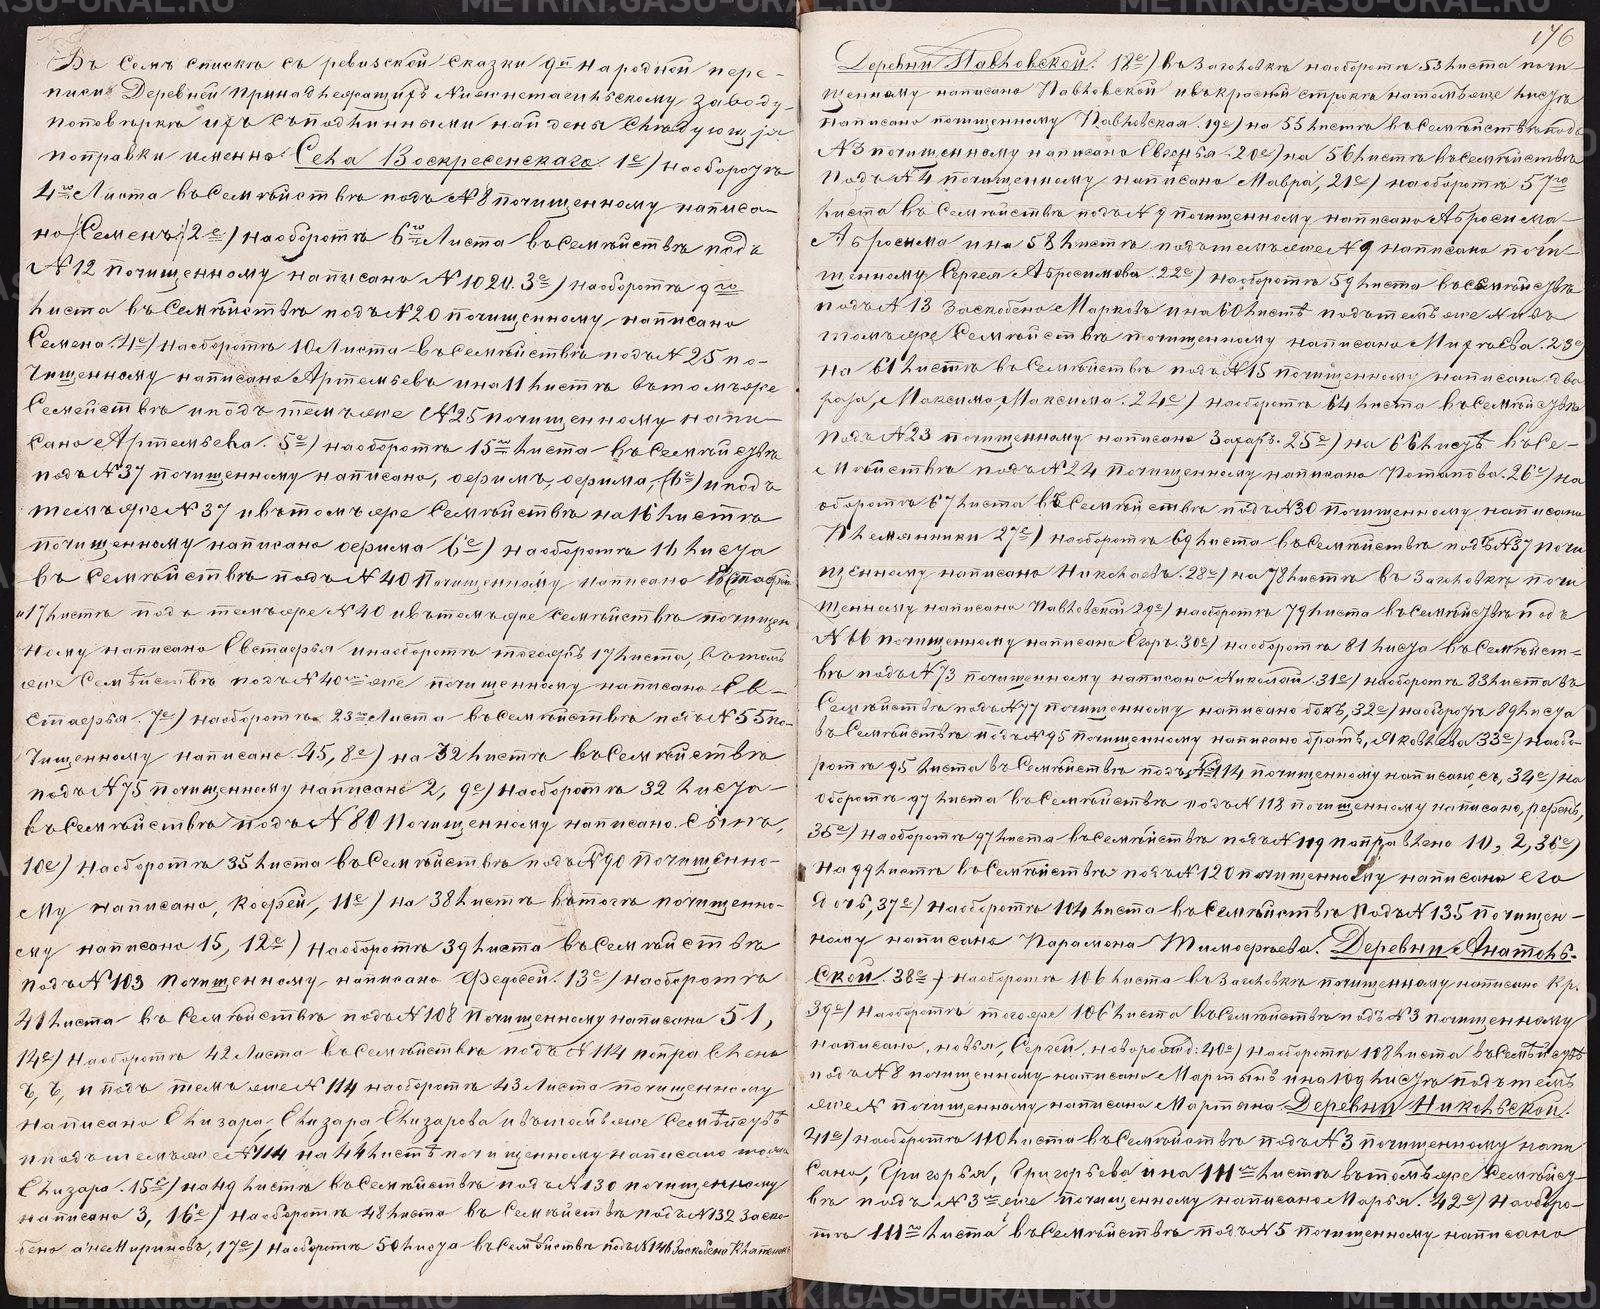 METRIKI.GASU-URAL.RU
Въ семъ списке съ ревизской сказки 9й народной пере-
писи Деревней принадлежащихъ Нижнетагильскому заводу,
по поверке ихъ съ подлинными найдены следующія
поправки именно: Села Воскресенскаго 1е) на оборотѣ
4го Листа въ семействѣ подъ №8 почищенному написа-
но /Семенъ/ 2е) на оборотѣ 6го Листа въ семействѣ подъ
№12 почищенному написано №10 3е) на оборотѣ 9го
листа въ семействѣ подъ №20 почищенному написано
Семена. 4е) на оборотѣ 10 Листа въ семействѣ подъ №25 по-
чищенному написано Артемьевъ и на 11 листѣ въ томъ же
семействѣ и подъ темъ же №25 почищенному напи-
сано Артемьева. 5е) на оборотѣ 15го листа въ семействѣ
подъ №37 почищенному написано, ѳеримъ, ѳерима, и подъ
темъ же №37 и въ томъ же семействѣ на 16 листѣ
почищенному написано ѳерима 6е) на оборотѣ 16 листа
въ семействѣ подъ №40 почищенному написано
17 листѣ подъ темъ же №40 и въ томъ же семействѣ почищен
ному написано Евстафья и на оборотѣ того же 17 листа, въ томъ
же семействѣ подъ №40мъ же почищенному написано Ев-
стафья. 7е) на оборотѣ 23го Листа въ семействѣ подъ №55 по-
чищенному написано 45, 8е) на 32 листѣ въ семействѣ
подъ №75 почищенному написано 2, 9е) на оборотѣ 32 листа
въ семействѣ подъ №80 почищенному написано. сынъ,
10е) на оборотѣ 35 листа въ семействѣ подъ №90 почищенно-
му написано, 11е) на 38 листѣ въ итоге почищенно-
му написано 15, 12е) на оборотѣ 39 листа въ семействѣ
подъ №103 почищенному написано Федосей. 13е) на оборотѣ
41 листа въ семействѣ подъ №108 почищенному написано 51,
14е) на оборотѣ 42 Листа въ семействѣ подъ №114 поправлено
и подъ темъ же №114 на оборотѣ 43 Листа почищенному
написано Елизара, Елизара Елизарова и въ томъ же семействѣ
и подъ темъ же №114 на 44 листѣ почищенному написано
Елизара. 15е) на листѣ въ семействѣ подъ №130 почищенному
написано 3, 16е) на оборотѣ 48 листа въ семействѣ подъ №132 заско-
блено а не Мироновъ, 17е) на оборотѣ 50 листа въ семействѣ подъ заскоблено
176
Деревни Павловской. 18е) въ заголовкѣ на оборотѣ 53 листа почи-
щенному написано Павловской и въ красной строкѣ на томъ же листѣ
написано почищенному Павловская. 19е) на 55 листѣ въ семействѣ подъ
№3 почищенному написано 20е) на 56 листѣ въ семействѣ
подъ №4 почищенному написано Мавра, 21е) на оборотѣ 57го
листа въ семействѣ подъ №9 почищенному написано Абросима
Абросима и на 58 листѣ подъ темъ же №9 написано почи-
щенному Сергея Абросимова. 22е) на оборотѣ 59 листа въ семействѣ
подъ №13 заскоблено Марковъ и на 60 листѣ подъ темъ же № и въ
томъ же семействѣ почищенному написано Михѣева. 23е)
на 61 листѣ въ семействѣ подъ №15 почищенному написано два
раза, Максима, Максима. 24е) на оборотѣ 64 листа въ семействѣ
подъ №23 почищенному написано Захаръ. 25е) на 66 листѣ въ се-
мействѣ подъ №24 почищенному написано Потапова. 26е) на
оборотѣ 67 листа въ семействѣ подъ №30 почищенному написано
Племянники 27е) на оборотѣ 69 листа въ семействѣ подъ №37 почи
щенному написано Николаевъ. 28е) на 78 листѣ въ заголовкѣ почи
щенному написано Павловской 29е) на оборотѣ 79 листа въ семействѣ подъ
№66 почищенному написано Егоръ. 30е) на оборотѣ 81 листа въ семейст-
вѣ подъ №73 почищенному написано Николай. 31е) на оборотѣ 83 листа въ
семействѣ подъ №77 почищенному написано 32е) на оборотѣ 89 листа
въ семействѣ подъ №95 почищенному написано братъ, Яковлева 33е) на обо-
ротѣ 95 листа въ семействѣ подъ №114 почищенному написано, 34е) на
оборотѣ 97 листа въ семействѣ подъ №118 почищенному написано,
35е) на оборотѣ 97 листа въ семействѣ подъ №119 поправлено 10, 2, 36е)
на 99 листѣ въ семействѣ подъ №120 почищенному написано его
дочь, 37е) на оборотѣ 104 листа въ семействѣ подъ №135 почищен-
ному написано Парамона Тимофѣева. Деревни Анатоль-
ской. 38е) на оборотѣ 106 листа въ заголовкѣ почищенному написано Кр.
39е) на оборотѣ того же 106 листа въ семействѣ подъ №3 почищенному
написано, Сергей, новорожд: 40е) на оборотѣ 108 листа въ семействѣ
подъ №8 почищенному написано Мартынъ и на 109 листѣ подъ темъ
же № почищенному написано Мартына Деревни Никольской.
41е) на оборотѣ 110 листа въ семействѣ подъ №3 почищенному напи
сано, Григорья, Григорьева и на 111мъ листѣ въ томъ же семейст
вѣ подъ №3мъ же почищенному написано Марья. 42е) на оборо-
тѣ 111го листа въ семействѣ подъ №5 почищенному написано
METRIKI.GASU-URAL.RU